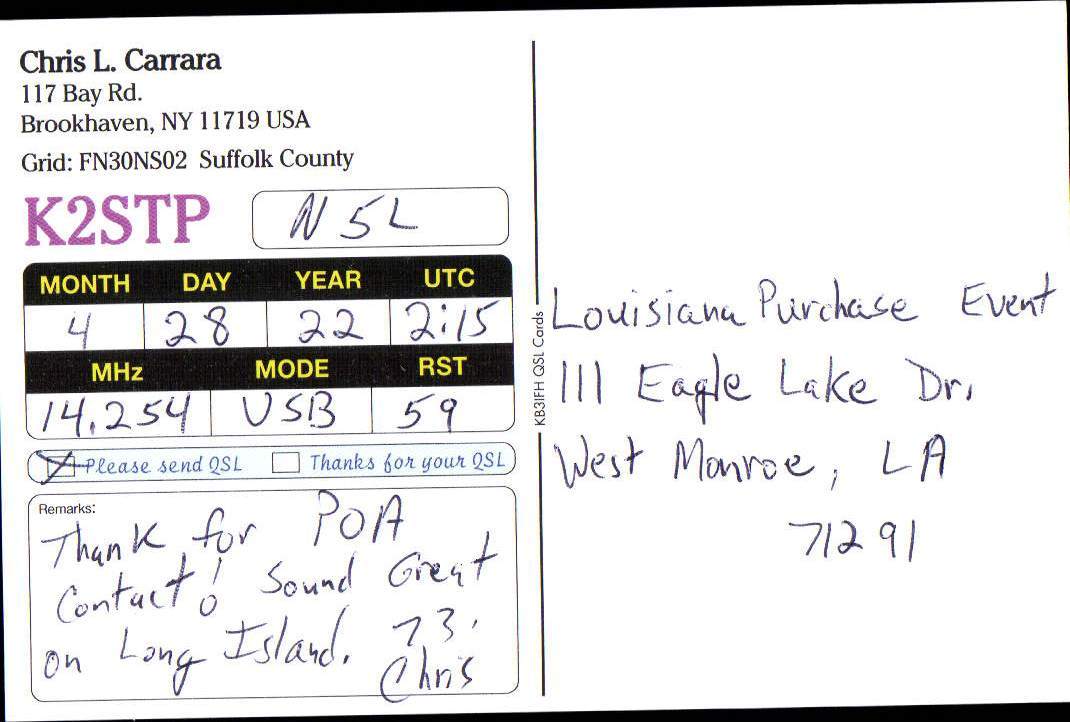 Chris L. Carrara
117 Bay Rd.
Brookhaven, NY 11719 USA
Grid: FN30NS02 Suffolk County
K2STP
N5L
MONTH DAY YEAR UTC
4 28 22 2:15
MHz MODE RST
14.254 USB 59
Please send QSL Thanks for your QSL
Remarks:
Thank for POA
Contact! Sound Great
on Long Island. 73,
Chris
KB3IFH QSL Cards
Louisiana Purchase Event
111 Eagle Lake Dr.
West Monroe, LA
71291